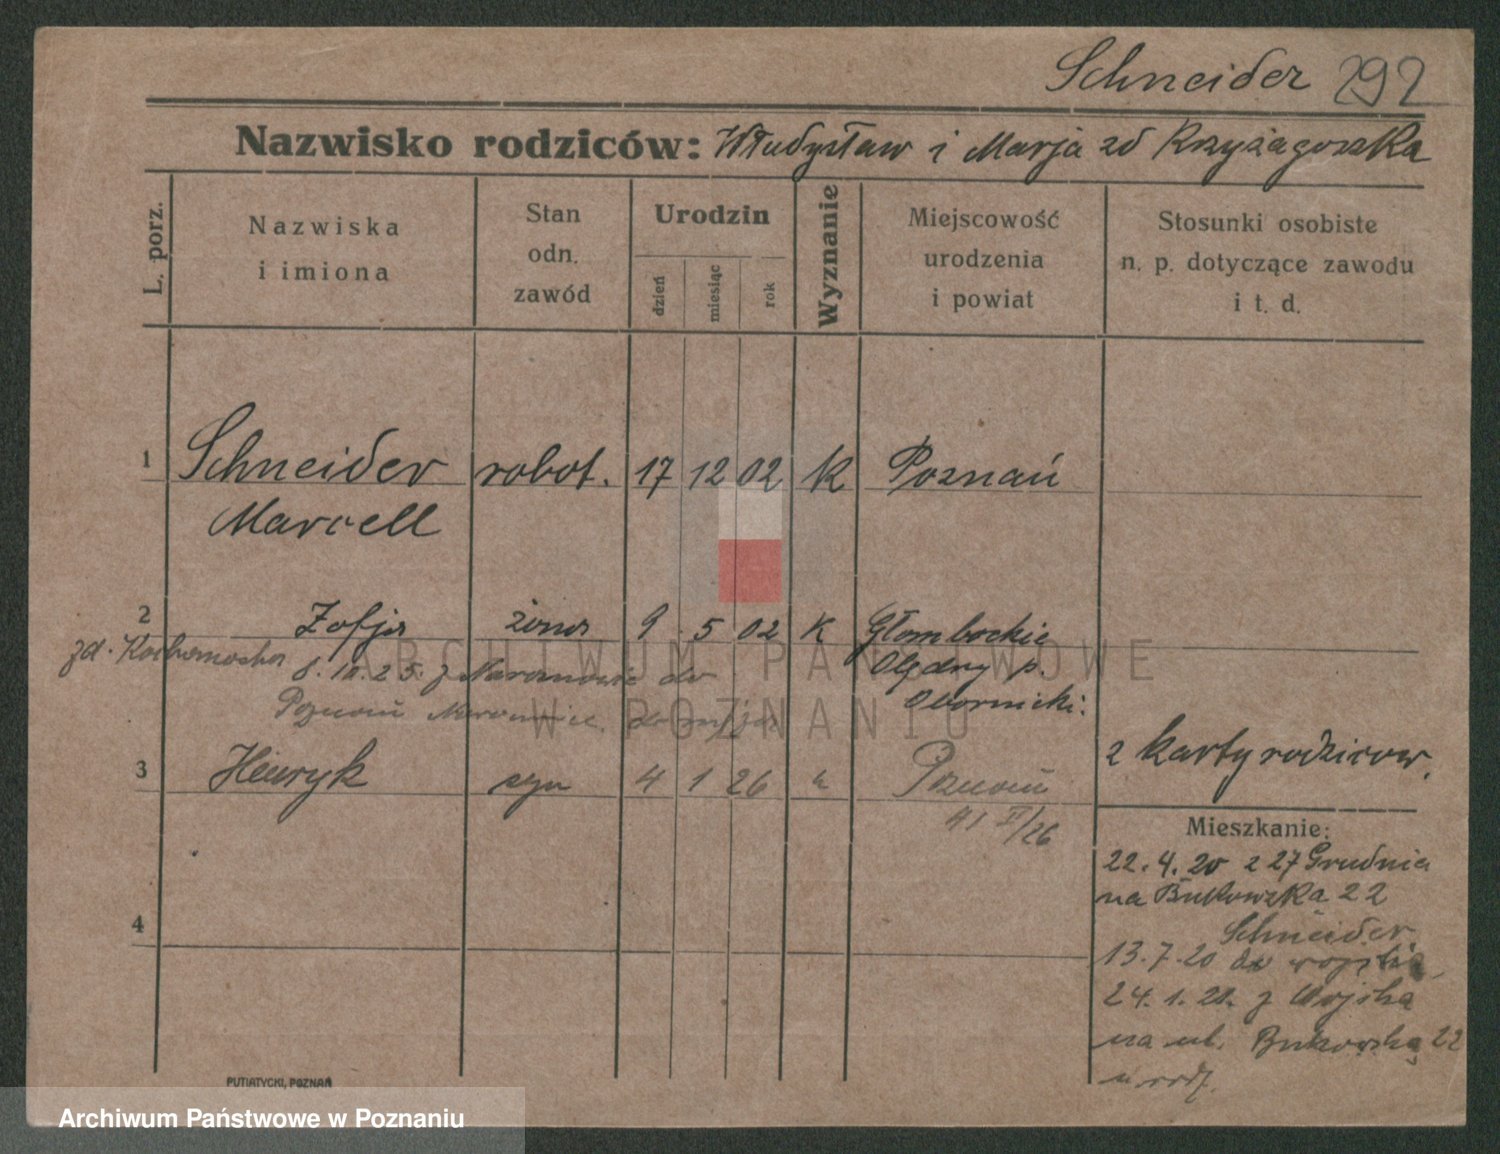 Schneider 292
Nazwisko rodziców: Władysław i Marja zd Krzyżagorska
L. porz.
Nazwiska
i imiona
Stan
odn.
zawód
Urodzin
dzień
miesiąc
rok
Wyznanie
Miejscowość
urodzenia
i powiat
Stosunki osobiste
n. p. dotyczące zawodu
i t. d.
1 Schneider robot. 17 12 02 K Poznań
Marcell
2 Zofja żona 9 5 02 K Głombockie
zd. Olędry p.
Obornicki.
8. 10. 25. z do
Poznań
3 Henryk syn 4 1 26 k Poznań
41 II/26
z karty rodziców.
Mieszkanie:
22. 4. 20 z 27 Grudnia
na Bukowska 22
4
Schneider
13. 7. 20 do wojska
24. 1. 21. z Wojska
na ul. Bukowską 22
u rodz.
PUTIATYCKI, POZNAŃ
ARCHIWUM PAŃSTWOWE
W POZNANIU
Archiwum Państwowe w Poznaniu